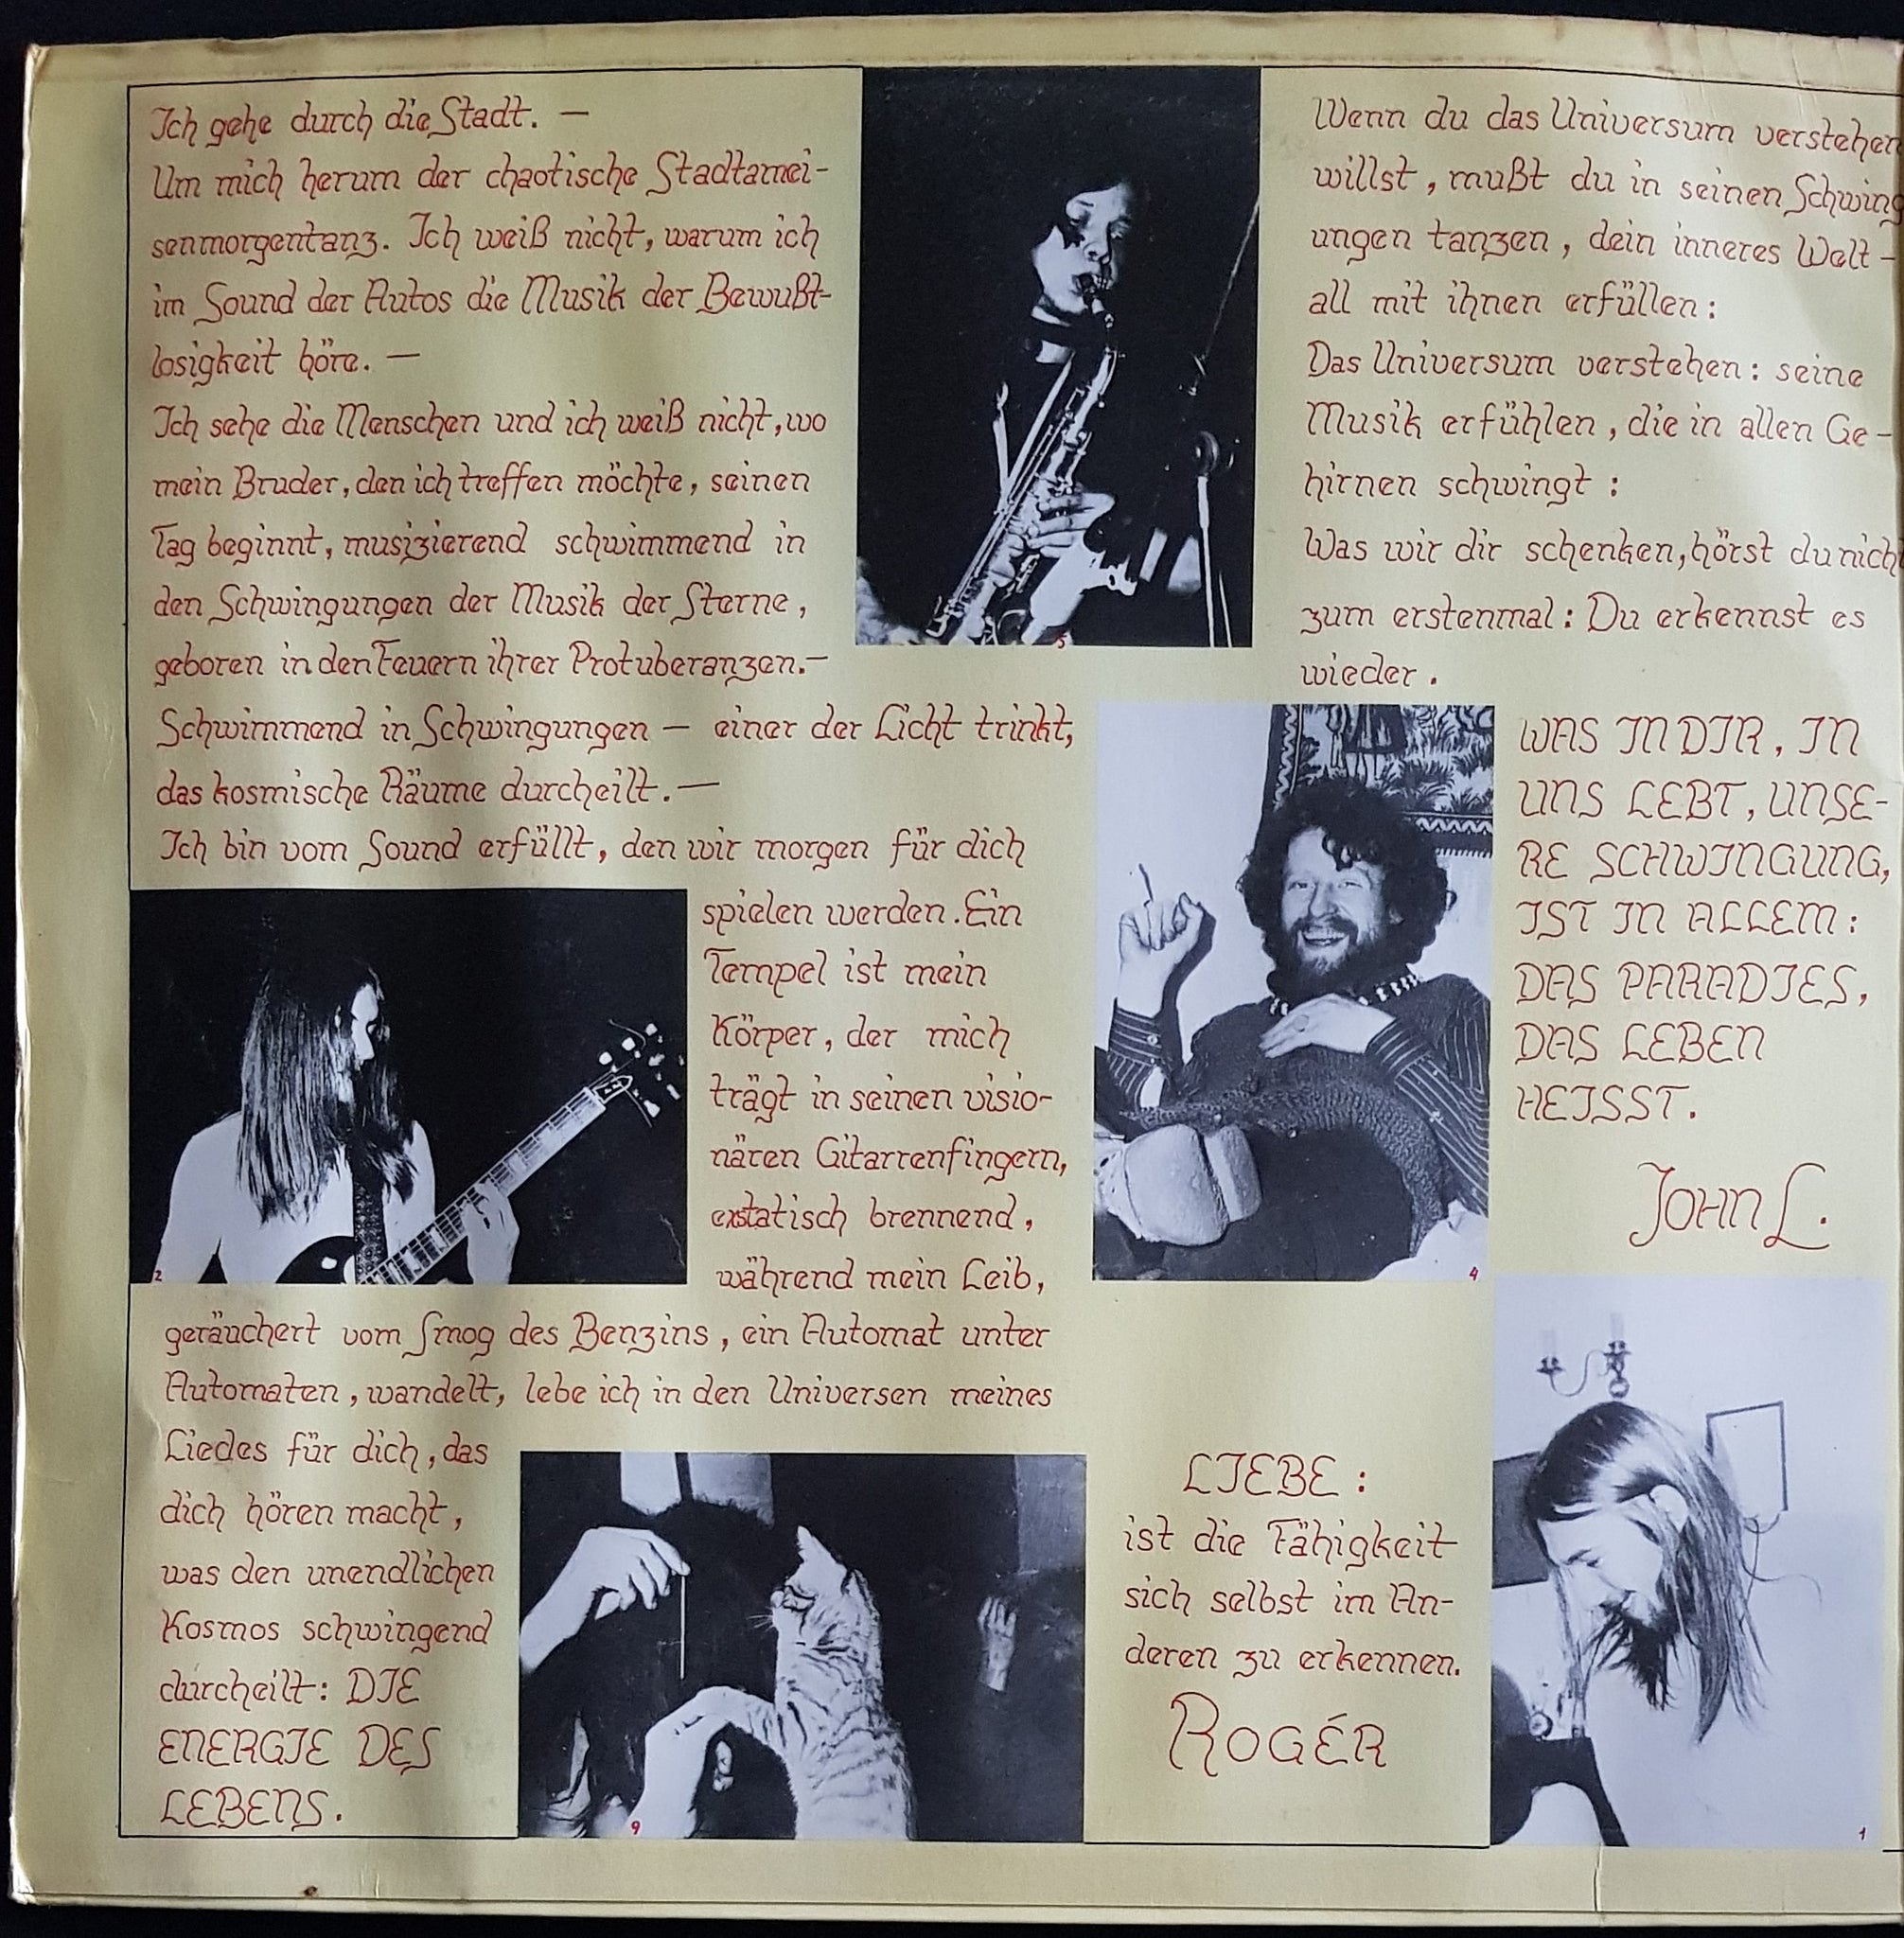 Ich gehe durch die Stadt. —
Um mich herum der chaotische Stadtamei-
senmorgentanz. Ich weiß nicht, warum ich
im Sound der Autos die Musik der Bewußt-
losigkeit höre. —
Ich sehe die Menschen und ich weiß nicht, wo
mein Bruder, den ich treffen möchte, seinen
Tag beginnt, musizierend schwimmend in
den Schwingungen der Musik der Sterne,
geboren in den Feuern ihrer Protuberanzen.—
Schwimmend in Schwingungen — einer der Licht trinkt,
das kosmische Räume durcheilt.—
Ich bin vom Sound erfüllt, den wir morgen für dich
spielen werden. Ein
Tempel ist mein
Körper, der mich
trägt in seinen visio-
nären Gitarrenfingern,
exstatisch brennend,
während mein Leib,
geräuchert vom Smog des Benzins, ein Automat unter
Automaten, wandelt, lebe ich in den Universen meines
Liedes für dich, das
dich hören macht,
was den unendlichen
Kosmos schwingend
durcheilt: DIE
ENERGIE DES
LEBENS.
5
2
9
Wenn du das Universum verstehen
willst, mußt du in seinen Schwing
ungen tanzen, dein inneres Welt-
all mit ihnen erfüllen:
Das Universum verstehen: seine
Musik erfühlen, die in allen Ge-
hirnen schwingt:
Was wir dir schenken, hörst du nich
zum erstenmal: Du erkennst es
wieder.
WAS IN DIR, IN
UNS LEBT, UNSE-
RE SCHWINGUNG,
IST IN ALLEM:
DAS PARADIES,
DAS LEBEN
HEISST.
JOHN L.
4
LIEBE:
ist die Fähigkeit
sich selbst im An-
deren zu erkennen.
ROGÉR
1